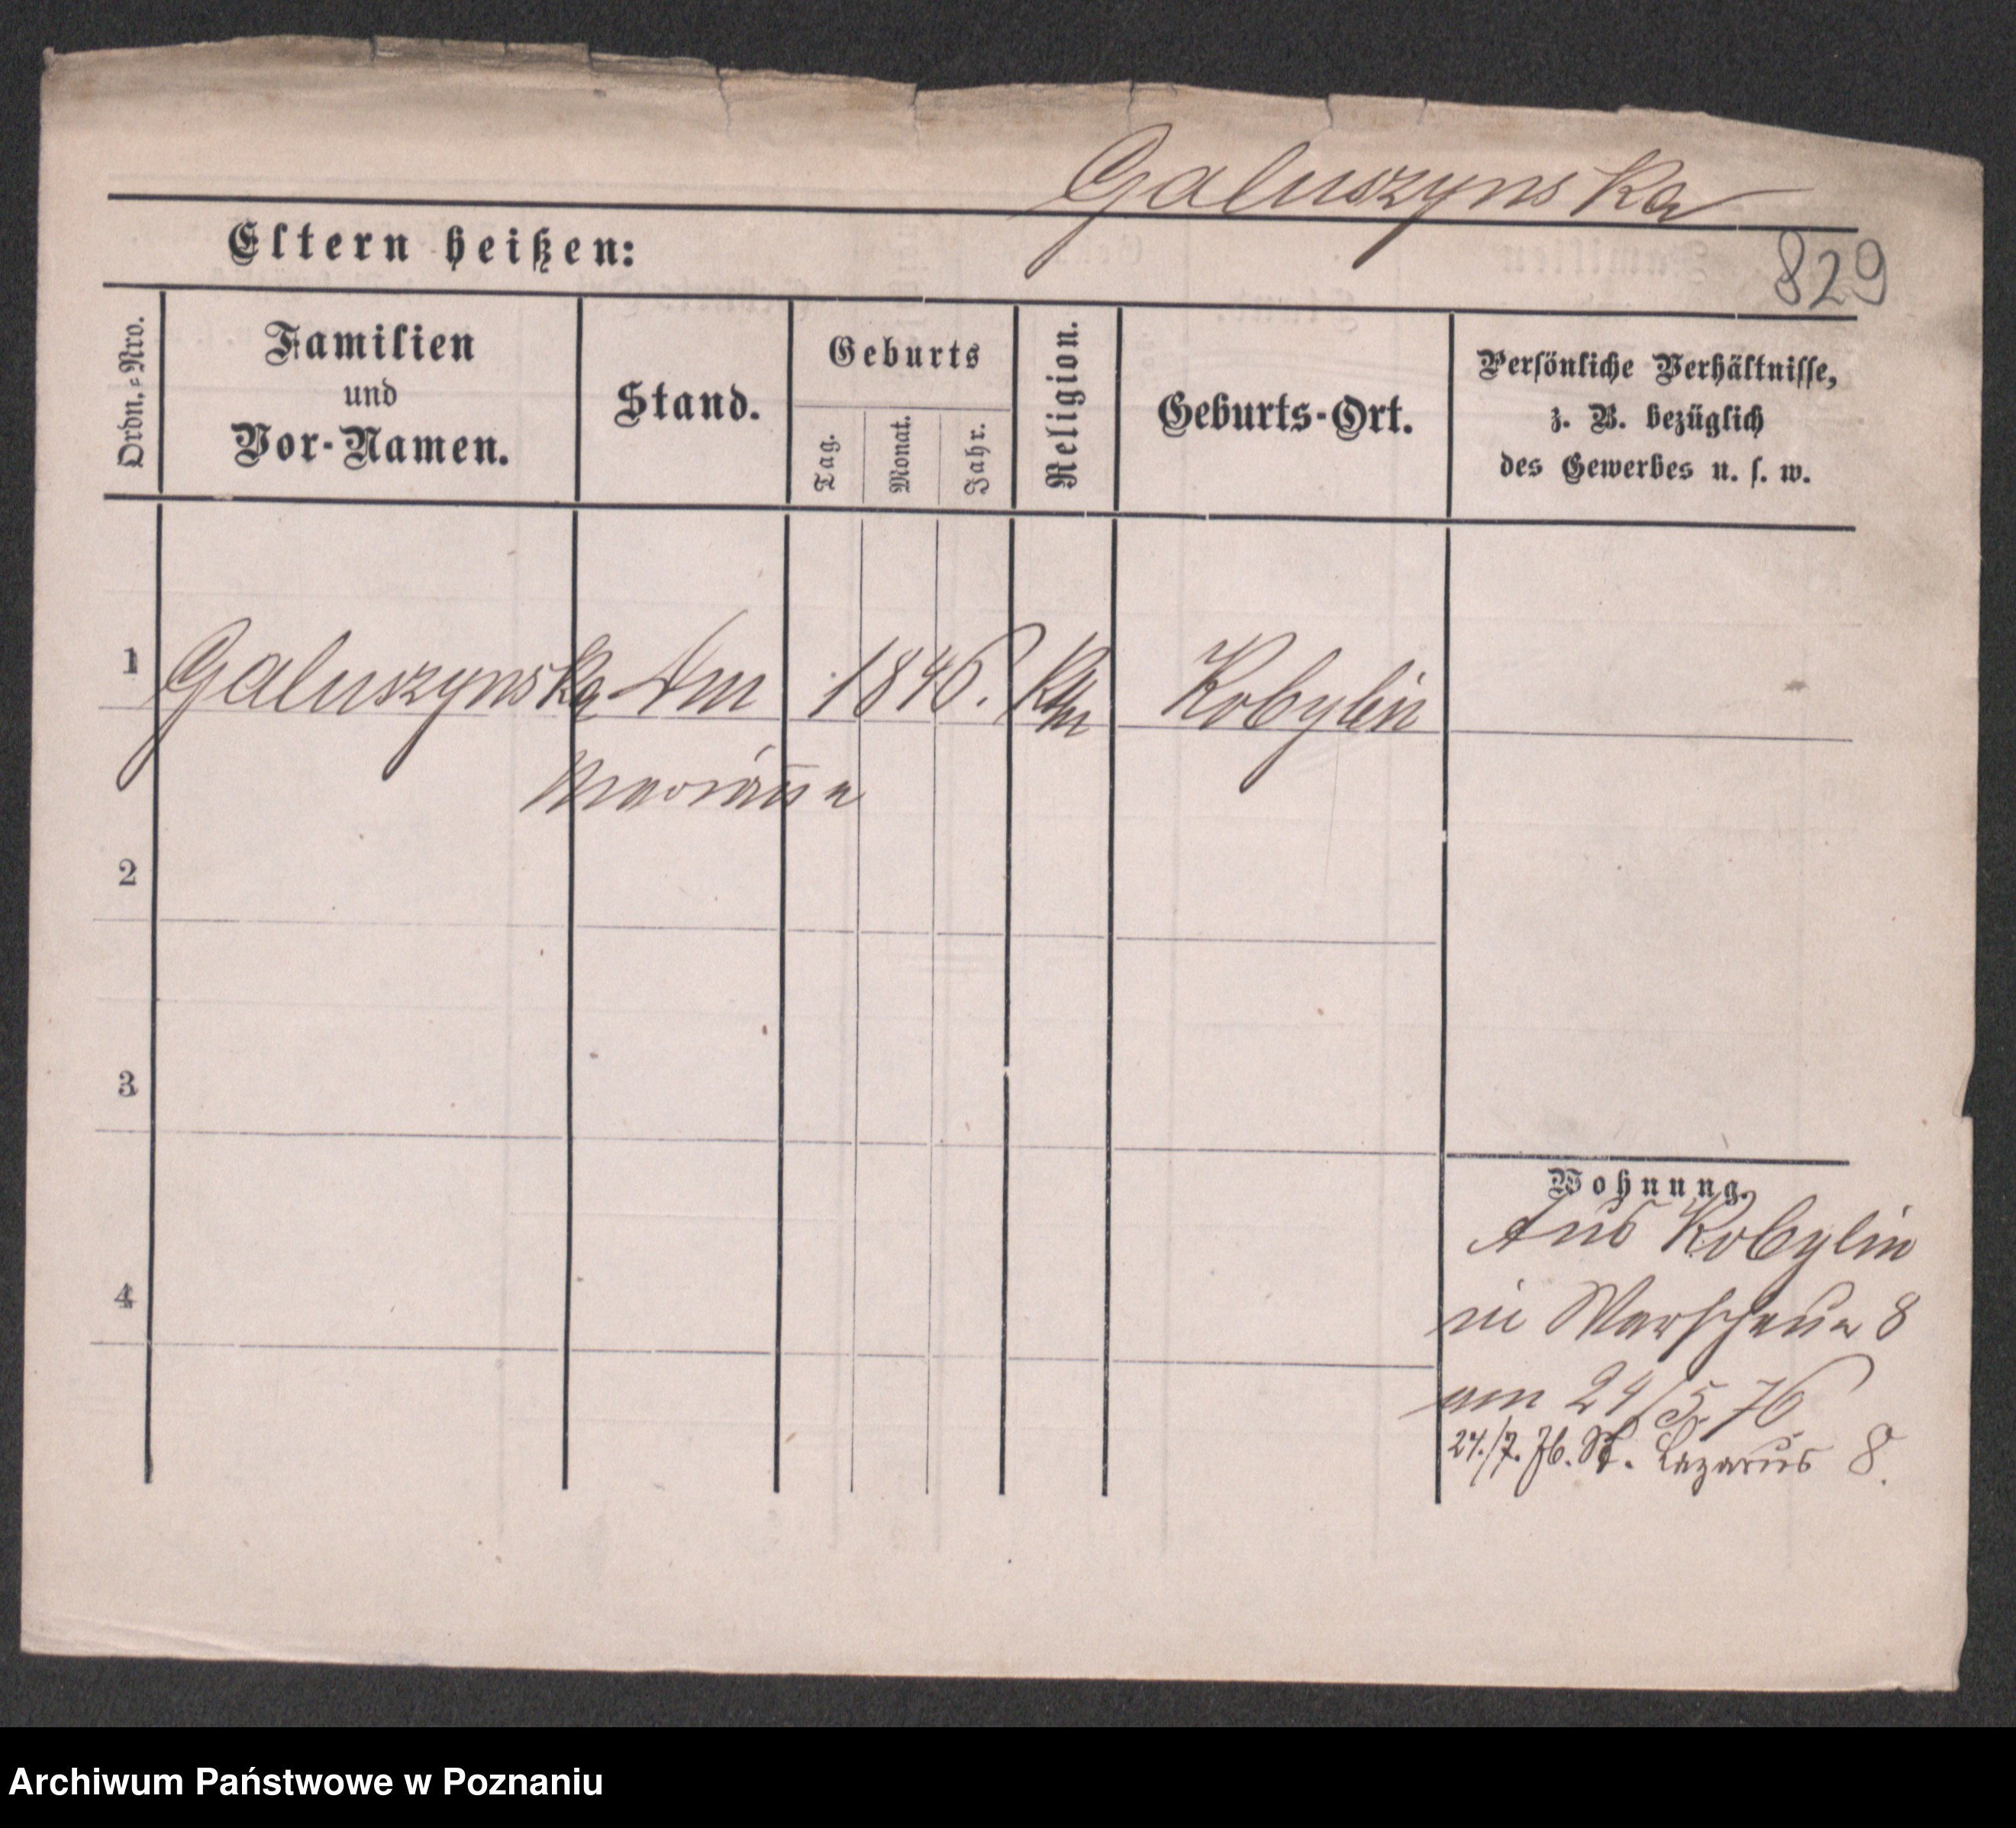 Galuszynska
Eltern heißen:
829
Ordn.=Nro.
Familien
und
Vor-Namen.
Stand.
Geburts
Tag.
Monat.
Jahr.
Religion.
Geburts-Ort.
Persönliche Verhältnisse,
z. B. bezüglich
des Gewerbes u. s. w.
1 Galuszynska 1846. Kobylin
Marianna
2
3
Wohnung.
Aus Kobylin
4
in Warschauer 8
am 24/5. 76
24./7. 76. St. Lazarus 8.
Archiwum Państwowe w Poznaniu